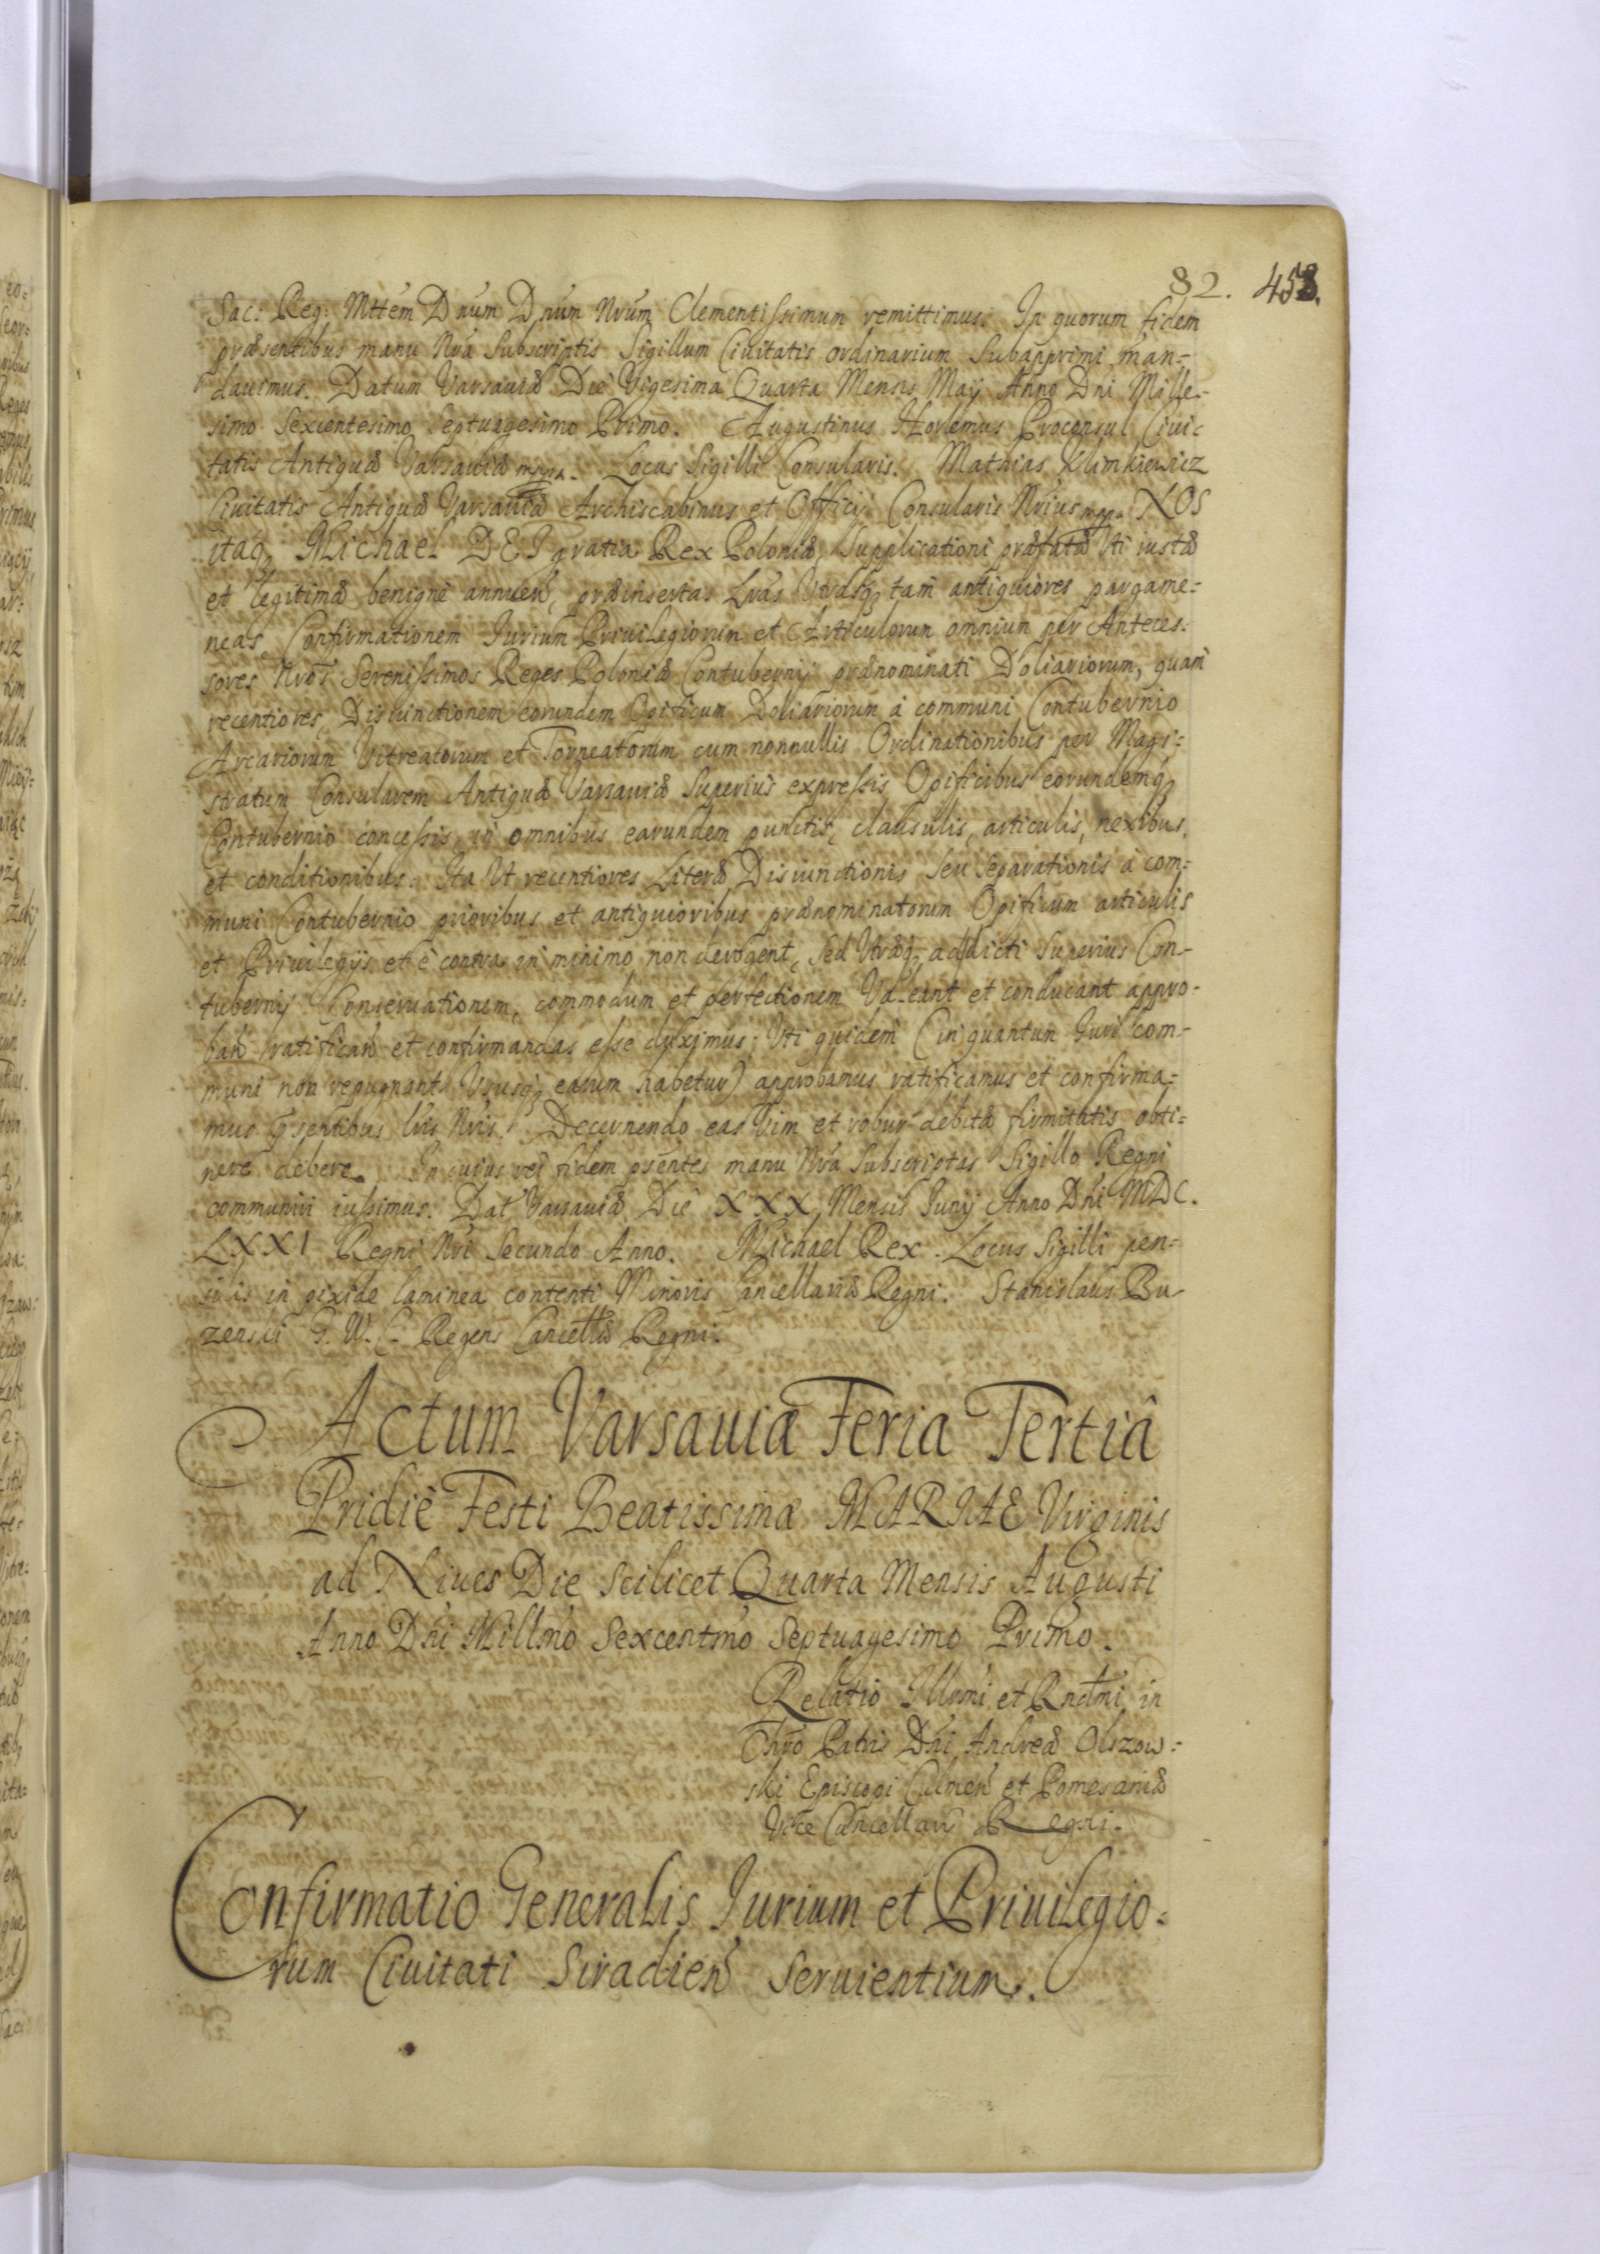 82. 458.
Sac: Reg: Mttem Dnum Dnum Nrum Clementissimum remittimus. In quorum fidem
præsentibus manu Nra Subscriptis Sigillum Ciuitatis ordinarium Subapprimi man-
dauimus. Datum Varsauiæ Die Vigesima Quarta Mensis Maÿ Anno Dni Mille-
simo Sexcentesimo Septuagesimo Primo. Augustinus Horlemus Proconsul Ciui-
tatis Antiquæ Varsauiæ mppa. Locus Sigilli Consularis. Mathias Klimkiewicz
Ciuitatis Antiquæ Varsauiæ Archiscabinus et Officii Consularis Nrius mpp. NOS
itaq Michael DEI gratia Rex Poloniæ, Supplicationi præfatæ Vti iustæ
et legitimæ benigne annuen, præinsertas Lras Vtrasq tam antiquiores pargame-
neas Confirmationem Iurium Priuilegiorum et Articulorum omnium per Anteces-
sores Nros Serenissimos Reges Poloniæ Contubernij prænominati Doliariorum, quam
recentiores, Disiunctionem eorundem Opificum Doliariorum à communi Contubernio
Arcariorum Vitreatorum et Torneatorum cum nonnullis Ordinationibus per Magi-
stratum Consularem Antiquæ Varsauiæ Superius expressis Opificibus eorundemq
Contubernio concessis in omnibus earundem punctis, clausulis, articulis, nexibus,
et conditionibus. Ita Vt recentiores Literæ Disiunctionis seu Separationis à com-
muni Contubernio prioribus et antiquioribus prænominatorum Opificum articulis
et Priuilegijs et è contra in minimo non derogent, Sed Vtræq addicti Superius Con-
tubernij Conseruationem, commodum et perfectionem Valeant et conducant appro-
ban ratifican et confirmandas esse duximus; Vti quidem (in quantum Iuri com-
muni non repugnant Vsusq earum habetur) approbamus ratificamus et confirma-
mus psentibus lris Nris. Decernendo eas Vim et robur debitæ firmitatis obti-
nere debere. In cuius rei fidem psentes manu Nra Subscriptas Sigillo Regni
communiri iussimus. Dat Varsauiæ Die XXX Mensis Iunij Anno Dni MDC.
LXXI Regni Nri Secundo Anno. Michael Rex. Locus Sigilli pen-
silis in pixide laminea contenti Minoris Cancellariæ Regni. Stanislaus Bu-
zenski P. W. C. Regens Cancellæ Regni.
Actum Varsauiæ Feria Tertiâ
Pridie Festi Beatissimæ MARIAE Virginis
ad Niues Die scilicet Quarta Mensis Augusti
Anno Dni Millmo Sexcentmo Septuagesimo Primo.
Relatio Illrmi et Rndmi in
Chro Patris Dni Andreæ Olszow-
ski Episcopi Culmen et Pomesaniæ
Vice Cancellarii Regni.
Confirmatio Generalis Iurium et Priuilegio-
rum Ciuitati Siradien seruientium.